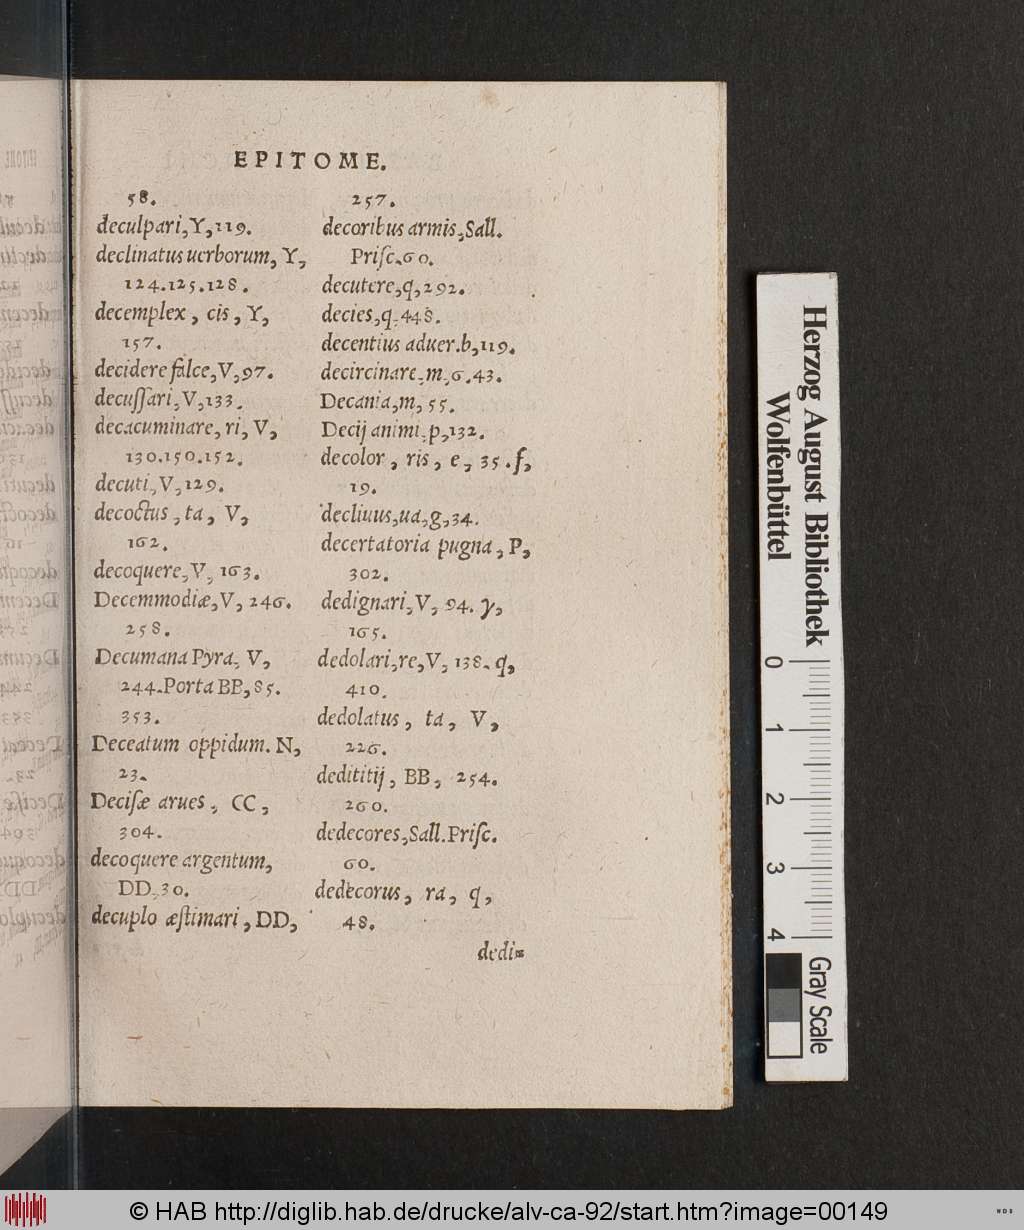 EPITOME.
58.
deculpari, Y, 119.
declinatus uerborum, Y,
124.125.128.
decemplex, cis, Y,
157.
decidere falce, V, 97.
decuſſari, V, 133.
decacuminare, ri, V,
130.150.152.
decuti, V, 129.
decoctus, ta, V,
162.
decoquere, V, 163.
Decemmodiæ, V, 246.
258.
Decumana Pyra, V,
244. Porta BB, 85.
353.
Deceatum oppidum. N,
23.
Deciſæ arues, CC,
304.
decoquere argentum,
DD, 30.
decuplo æſtimari, DD,
257.
decoribus armis, Sall.
Priſc. 60.
decutere, q, 292.
decies, q. 448.
decentius aduer. b, 119.
decircinare, m, 6. 43.
Decania, m, 55.
Decij animi, p, 132.
decolor, ris, e, 35. f,
19.
decliuus, ua, g, 34.
decertatoria pugna, P,
302.
dedignari, V, 94. γ,
165.
dedolari, re, V, 138. q,
410.
dedolatus, ta, V,
226.
dedititij, BB, 254.
260.
dedecores, Sall. Priſc.
60.
dedecorus, ra, q,
48.
dedi=
Herzog August Bibliothek
Wolfenbüttel
0 1 2 3 4
Gray Scale
© HAB http://diglib.hab.de/drucke/alv-ca-92/start.htm?image=00149